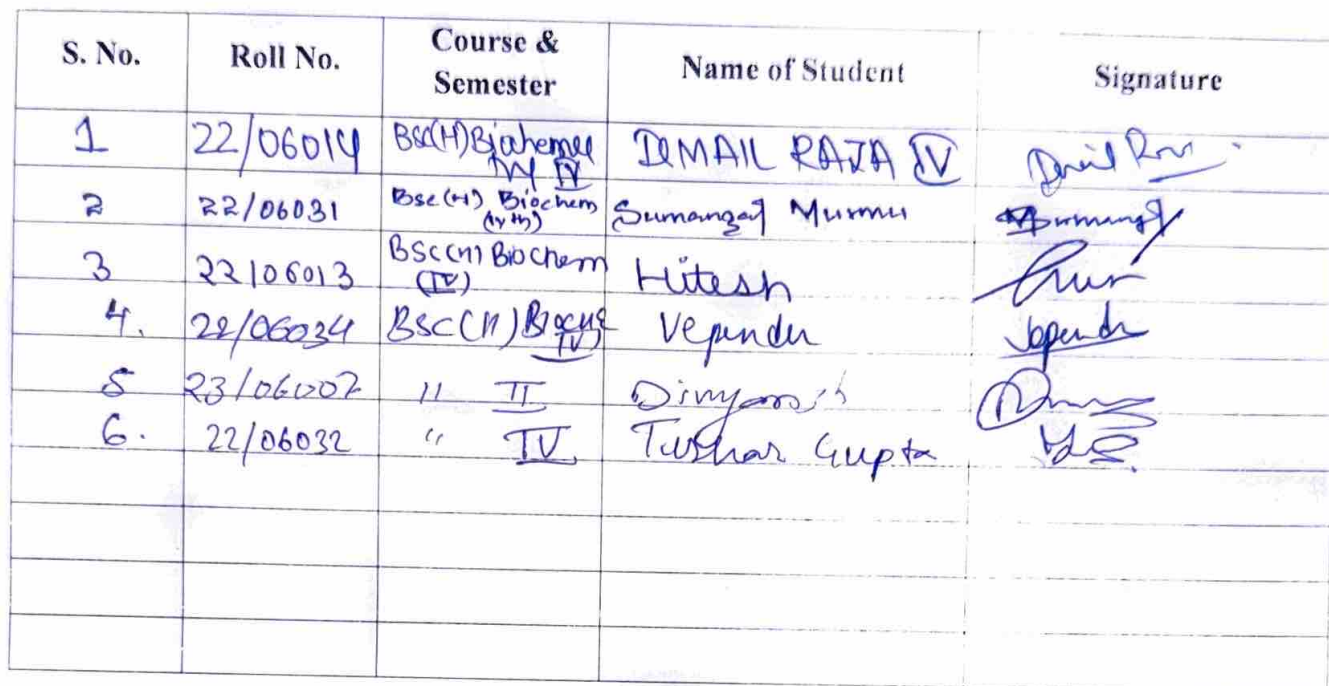 S. No. Roll No. Course & Semester Name of Student Signature
1 22/06014 BSc(H) Biochemee IV RAJA IV
2 22/06031 Bsc(H) Biochem (IVth) Sumangal Murmu
3 22/06013 BSc(H) Biochem (IV) Hitesh
4. 22/06034 BSC(H) (IV) Vependra Vependra
5 23/06007 " II
6. 22/06032 " IV Tushar Gupta